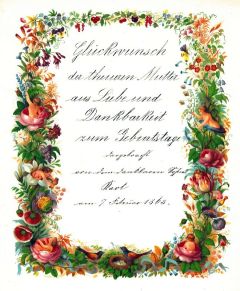 Glückwunsch
der theuren Mutter
aus Liebe und
Dankbarkeit
zum Geburtstage
dargebracht
von dem dankbaren Sohne
am 7 Februar 1865.